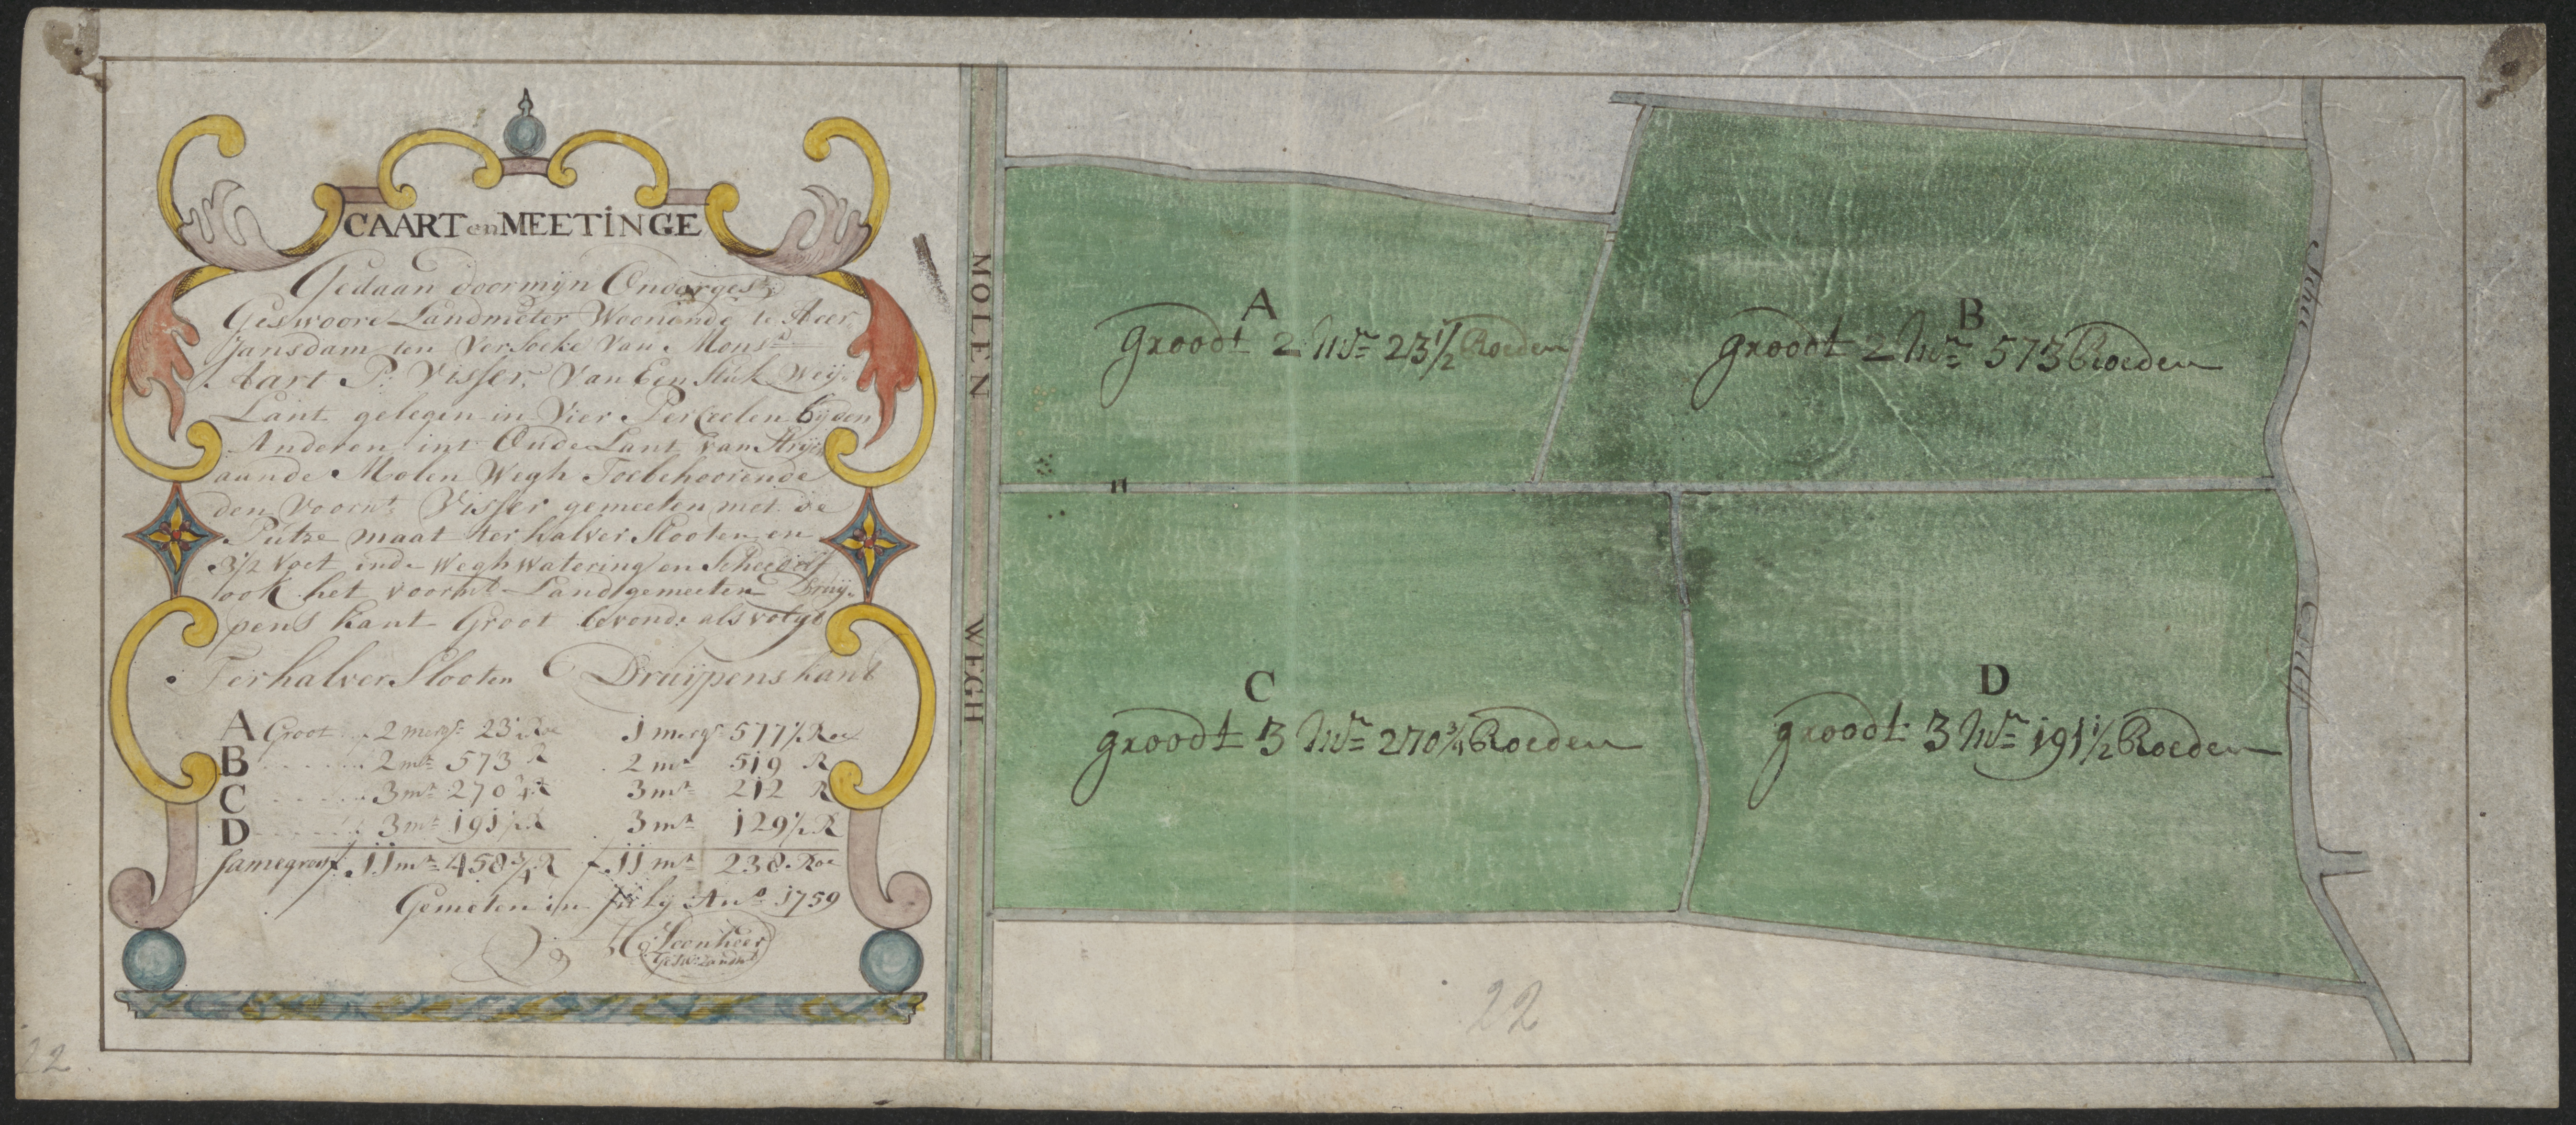 CAART en MEETINGE
Gedaan door mijn Onoorges:
Geswoore Landmeter Woonende te Heer
Jansdam ten Versoeke Van Monsr
Aart P: Visser, Van Een Stuk Weij-
Lant gelegen in Vier Perceelen bij den
Anderen int Oude Lant van Strijen
aande Molen Wegh Toebehoorende
den Voornt Visser gemeeten met de
Putse maat ter halver Slooten en
3½ Voet inde Wegh Watering en Scheedilf
ook het voornt Land gemeeten Druij-
pens kant Groot bevond: als volgt
Ter halver Slooten Druijpens kant
A Groot .. 2 mergn 23½ Roe 1 mergn 577½ Roe
B ...... 2 mn 573 R 2 mn 519 R
C ...... 3 mn 270¾ R 3 mn 212 R
D ...... 3 mn 191½ R 3 mn 129½ R
Samegroot 11 mn 458¾ R 11 mn 238 Roe
Gemeten in July Ano 1759
Leenheer
Gesw: Landmr
MOLEN WEGH
A
groodt 2 Mn 23½ Roeden
B
groodt 2 Mn 573 Roeden
C
groodt 3 Mn 270¾ Roeden
D
groodt 3 Mn 191½ Roeden
Schei Dilf
22
22